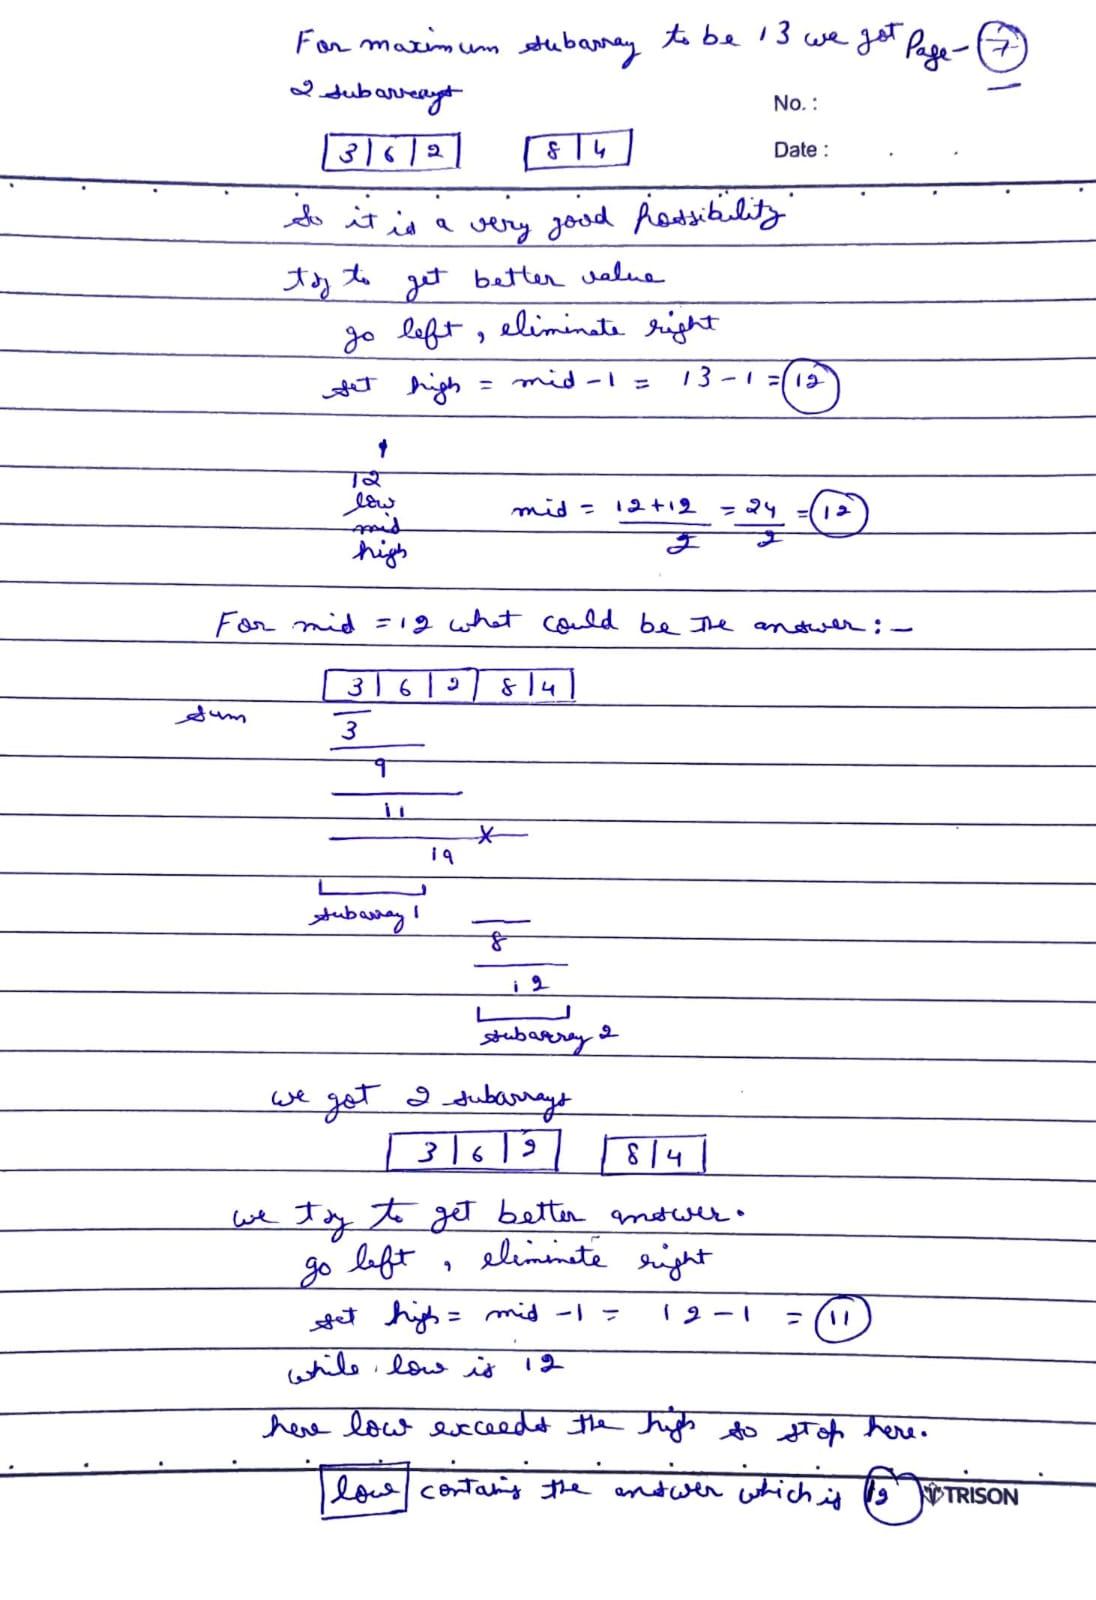 For maximum subarray to be 13 we got Page - 7
2 subarrays
No. :
3 | 6 | 2    8 | 4
Date :
So it is a very good possibility
try to get better value
go left, eliminate right
set high = mid - 1 = 13 - 1 = 12
12
low
mid
high
mid = 12+12 / 2 = 24 / 2 = 12
For mid = 12 what could be the answer :-
3 | 6 | 2 | 8 | 4
sum
3
9
11
19 ×
subarray 1
8
12
subarray 2
we got 2 subarrays
3 | 6 | 2    8 | 4
we try to get better answer.
go left, eliminate right
set high = mid - 1 = 12 - 1 = 11
while low is 12
here low exceeds the high so stop here.
low contains the answer which is 12
TRISON